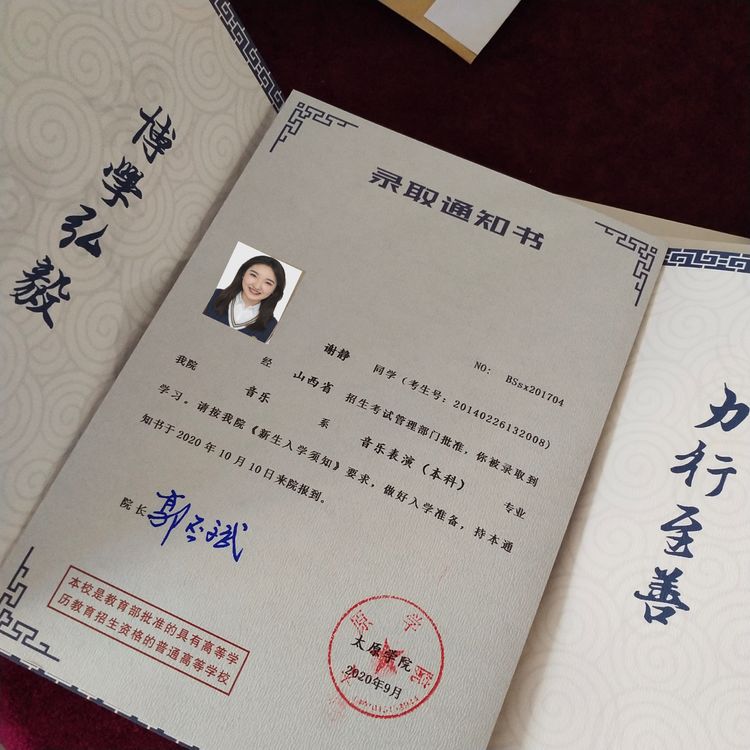 博学弘毅
录取通知书
NO: BSsx201704
谢静 同学（考生号：20140226132008）
经 山西省 招生考试管理部门批准，你被录取到
我院 音乐 系 音乐表演（本科） 专业
学习。请按我院《新生入学须知》要求，做好入学准备，持本通
知书于 2020 年 10 月 10 日来院报到。
院长 郭丕斌
本校是教育部批准的具有高等学
历教育招生资格的普通高等学校
太原学院
2020年9月
力行至善